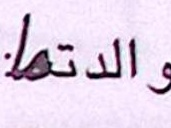 والدتها.